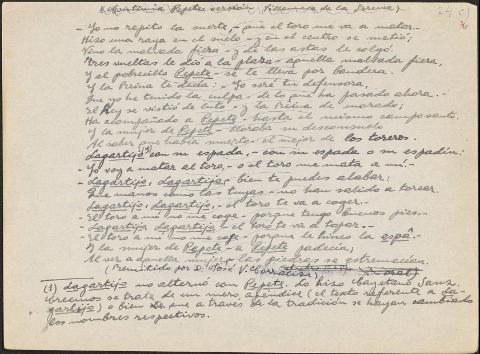 (Pepete versión Villanueva de la Serena)
- Yo no repito la suerte, - que el toro me va a matar.
Hizo una raya en el suelo - y en el centro se metió;
Vino la malvada fiera - y de las astas le colgó.
Tres vueltas le dió a la plaza - aquella malvada fiera,
Y al pobrecillo Pepete - se le lleva por bandera.
Y la Reina le decía: - Yo seré tu defensora,
Que yo he tenido la culpa - de lo que ha pasado ahora. -
El Rey se vistió de luto - y la Reina de morado;
Ha acompañado a Pepete - hasta el mismo camposanto.
Y la mujer de Pepete - lloraba sin desconsuelo
Al saber que había muerto - el mejor de los toreros.
Lagartijo (1) con su espada, - con su espada o su espadín:
- Yo voy a matar al toro, - o el toro me mata a mí. -
- Lagartijo, Lagartijo, - bien te puedes alabar:
Que manos como las tuyas - no han salido a torear.
Lagartijo, Lagartijo, - el toro te va a coger. -
- El toro a mí no me coge - porque tengo buenos pies. -
- Lagartijo, Lagartijo, - el toro te va a topar. -
- El toro a mí no me coge - porque le hinco la espá. -
Y la mujer de Pepete - a Pepete padecía;
Al ver a aquella mujer - las piedras se estremecían.
(Remitido por D. José V. Corraliza)
(1) Lagartijo no alternó con Pepete. Lo hizo Cayetano Sanz.
Creemos se trate de un mero apéndice (el texto referente a La-
gartijo) o bien que a través de la tradición se hayan cambiado
los nombres respectivos.